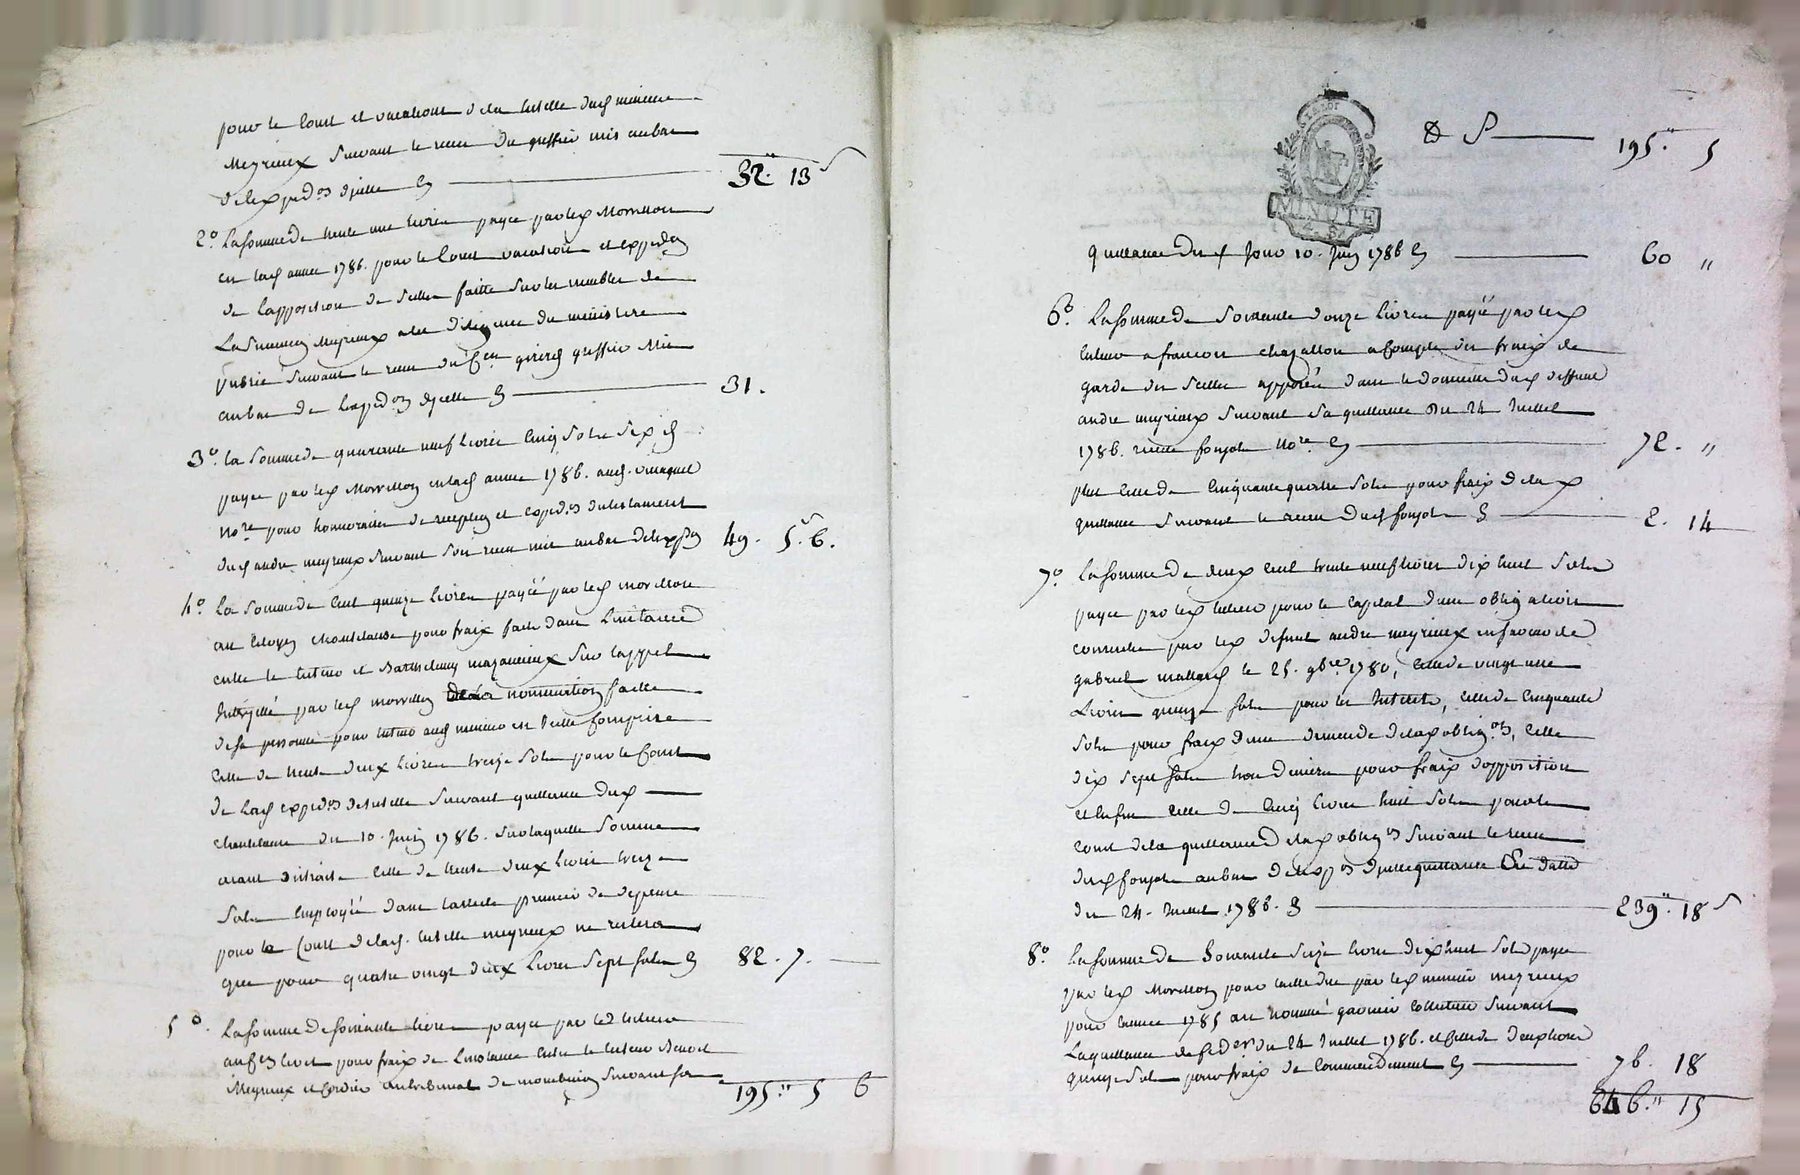 pour le Cout et vacations de la tutelle dud. mineur
Meyrieux suivant le recu du greffier mis au bas
de l'exped.on d'icelle 32. 13
2.o La somme de trente une livres payée par led. Morrellon
en lad. année 1786. pour le Cout vacations et expéd.on
de l'apposition de scellés faitte sur les meubles de
La Succession Meyrieux a la diligence du ministere
public suivant le recu du greffier Mis
au bas de l'exped.on d'icelle 31.
3.o la Somme de quarante neuf livres Cinq Sols Six d.
payée par led. Morrellon en lad. année 1786. aud.
no.re pour honnoraires de reception et exped.on du testament
dud. andré meyrieux suivant son recu mis au bas de l'exp.on 49. 5. 6.
4.o La Somme de Cent quinze livres payée par led. morrellon
au Citoyen Chantelauze pour fraix faits dans L'instance
entre le tuteur et Barthelemy sur l'appel
par led. morrellon de la nomination faitte
de sa personne pour tuteur aud. mineur en icelle Comprise
Celle de trente deux livres treize Sols pour le Cout
de lad. exped.on de tutelle Suivant quittance dud.
Chantelauze du 10. Juin 1786. sur laquelle Somme
ayant distrait Celle de trente deux livres treize
Sols Employée dans l'article premier de depense
pour le Cout de lad. tutelle meyrieux ne restera
que pour quatre vingt deux livres Sept sols 82. 7.
5.o La somme de soixante livres payée par led. tuteur
pour fraix de L'instance Entre le tuteur Benoit
Meyrieux et Cordier au tribunal de montbrison suivant sa
195. 5 6
195. 5
MINUTE
quittance du Jour 10. Juin 1786 60 "
6.o La somme de Soixante douze livres payée par led.
tuteur a francois chazallon a Compte des fraix de
garde des Scellés apposés dans le domicile dud. deffunt
andré meyrieux suivant sa quittance du 24 Juillet
1786. recue fonjols No.re 72. "
plus celle de Cinquante quatre Sols pour fraix de lad.
quittance Suivant le recu dud. fonjols 2. 14
7.o La somme de deux Cent trente neuf livres dix huit Sols
payée par led. tuteur pour le Capital d'une obligation
consentie par led. defunt andré meyrieux en faveur de
gabriel le 25. 9bre 1780, Celle de vingt une
Livres quinze sols pour les Interets, Celle de Cinquante
Sols pour fraix d'une demande de lad. oblig.on, Celle
dix Sept sols trois deniers pour fraix d'opposition
et Enfin Celle de Cinq livres huit Sols pour le
cout de la quittance de lad. oblig.on Suivant le recu
dud. fonjols au bas de l'exp.on d'icelle quittance En datte
du 24. Juillet 1786. 239. 18
8.o La somme de Soixante Seize livres dix huit Sols payée
par led. Morrellon pour taille due par led. mineur meyrieux
pour l'année 1785 au nommé garnier Collecteur Suivant
La quittance de ce d.er du 24 Juillet 1786. et Celle de
quinze sols pour fraix de Commandement 76. 18
646. 15